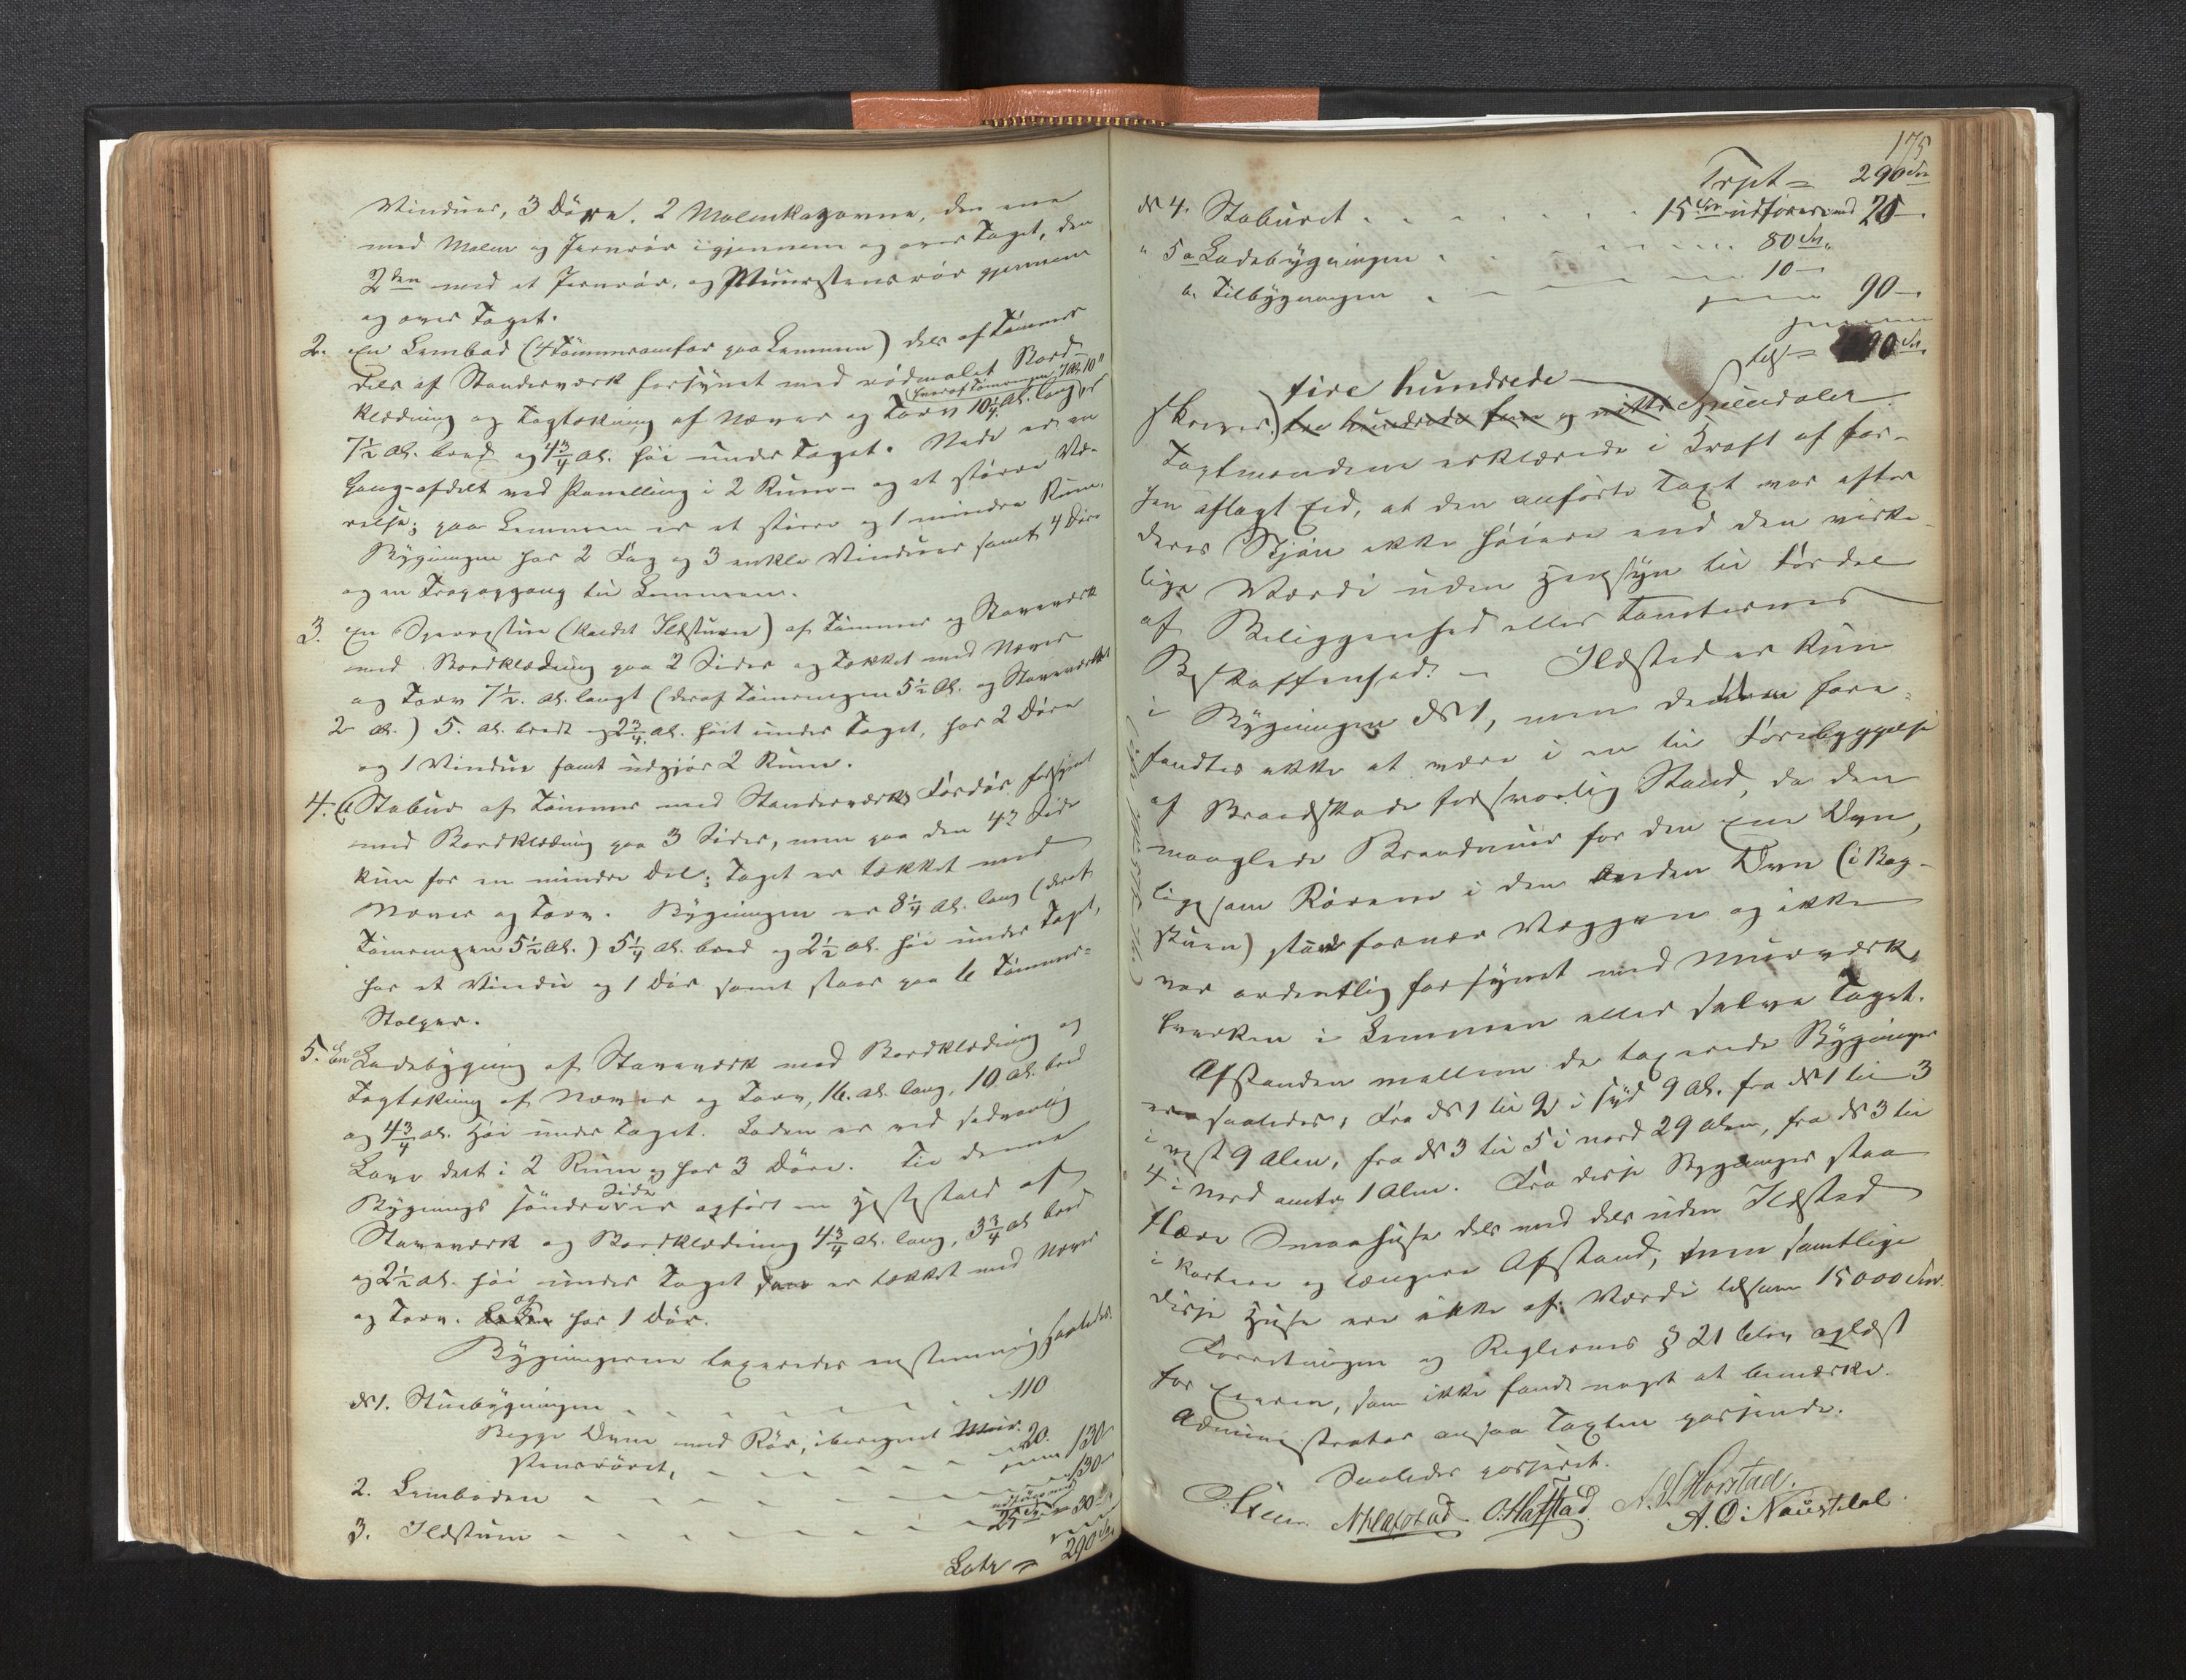 Vinduer, 3 Döre. 2 Malmkakovne, den ene
med Malm og Jernrör igjennem og over Taget, den
2den med et Jernrör, og Muurstensrör gjennem
og over Taget.
2. En Lembod (4 Tömmeromfar paa Lemmen) dels af Tömmer
dels af Stenderværk forsynet med rödmalet Bord-
klædning og Tagtækning af Næver og Torv (hvoraf Tömringen 7 Al. 10") 10 1/4 Al. lang,
7 1/2 Al. bred og 4 3/4 Al. höi under Taget. Nede er en
Gang afdelt ved Panelling i 2 Rum og et större Væ-
relse; paa Lemmen er et större og 1 mindre Rum.
Bygningen har 2 Fag og 3 enkle Vinduer samt 4 Döre
og en Trapopgang til Lemmen.
3. En Sperrestue (kaldet Ildstuen) af Tömmer og Staveværk
med Bordklædning paa 2 Sider og Tækket med Næver
og Torv 7 1/2 Al. langt (deraf Tömringen 5 1/2 Al. og Staveværket
2 Al.) 5 Al. bredt og 2 3/4 Al. höit under Taget, har 2 Döre
og 1 Vindue samt udgjör 2 Rum.
4. Et Stabur af Tömmer med Stenderværks Fordör forsynet
med Bordklædning paa 3 Sider, men paa den 4de Side
kun for en mindre Del; Taget er tækket med
Næver og Torv. Bygningen er 8 1/4 Al. lang (deraf
Tömringen 5 1/2 Al.) 5 1/4 Al. bred og 2 1/2 Al. höi under Taget,
har et Vindu og 1 Dör samt staar paa 6 Tömmer-
Stolper.
5. En Ladebygning af Staveværk med Bordklædning og
Tagtækning af Næver og Torv, 16 Al. lang, 10 Al. bred
og 4 3/4 Al. höi under Taget. Laden er ved sædvanlig
Lave delt i 2 Rum og har 3 Döre. Til denne
Bygnings söndre Side er opfört en Hestestald af
Staveværk og Bordklædning 4 3/4 Al. lang, 3 3/4 Al. bred
og 2 1/2 Al. höi under Taget som er tækket med Næver
og Torv. og har 1 Dör.
Bygningerne taxeredes enstemmig saaledes:
No 1. Stuebygningen - - - 110
Begge Ovne med Rör, iberegnet Muur-
stensröret, - - - 20. 130
2. Lemboden - - - 130
3. Ildstuen - - - 25 Spd udföres med 30
Lats = 290 Spd
175
Trpt = 290 Spd
No 4. Staburet - - - 15 Spd udföres med 20
" 5 a Ladebygningen - - - 80 Spd.
b. Tilbygningen - - - 10 - 90 -
tils = 400 Spd.
fire hundrede
skriver) tre hundrede fem og nitti Speciedaler
Taxtmændene erklærede i Kraft af for-
hen aflagt Eed, at den anförte Taxt var efter
deres Skjön ikke höiere end den virke-
lige Værdi uden Hensyn til Fordel
af Beliggenhed eller Tomternes
Beskaffenhed. - Ildsted er kun
i Bygningen No 1, men dennem fore-
fandtes ikke at være i en til Forebyggelse
af Brandskade forsvarlig Stand, da den
manglede Brandmuur for den ene Ovn,
ligesom Rörene i den anden Ovn (i Bag-
stuen) stod for nær Væggen og ikke
var ordentlig forsynet med Muurværk
hverken i Lemmen eller selve Taget.
Afstanden mellem de taxerede Bygninger
ere saaledes: Fra No 1 til 2 i syd 9 Al. fra No 1 til 3
i vest 9 Alen, fra No 3 til 5 i nord 29 Alen, fra No 3 til
4 i Nord omtr. 1 Alen. Fra disse Bygninger staa
flere Smaahuse dels med dels uden Ildsted
i kortere og længere Afstand, men samtlige
disse Huse ere ikke af Værdi tilsam 15000 Spd.
Forretningen og Reglernes § 21 blev oplæst
for Eieren, som ikke fandt noget at bemærke.
Administrator ansaa Taxten passende.
Saaledes passeret.
O. Hafstad. N. J. Horstad.
A. O. Naustdal.